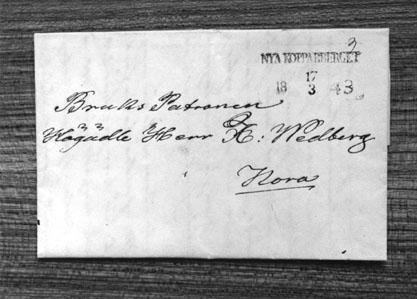 3
NYA KOPPARBERGET
17
18 3 43
Bruks Patronen
Högädle Herr H: Wedberg
Nora